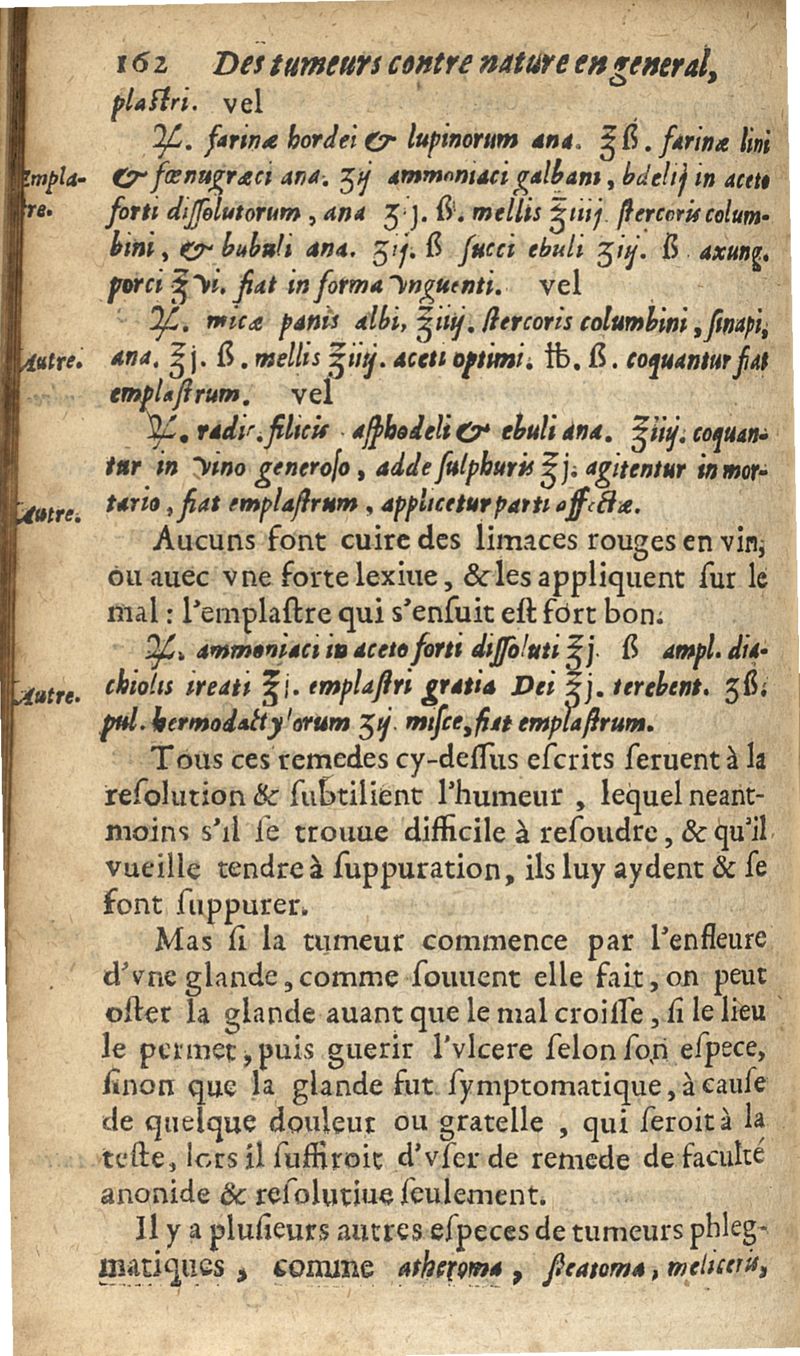 162 Des tumeurs contre nature en general,
plastri. vel
♃. farinæ hordei & lupinorum ana. ℥ ß. farinæ lini
Empla-
& fœnugræci ana. ʒij ammoniaci galbani, bdelij in aceto
tre.
forti dissolutorum, ana ʒ j. ß. mellis ℥iiij stercoris colum-
bini, & bubuli ana. ʒij. ß succi ebuli ʒiij. ß axung.
porci ℥ vi. fiat in forma vnguenti. vel
♃. micæ panis albi, ℥iiij. stercoris columbini, sinapi,
Autre.
ana. ℥j. ß. mellis ℥iiij. aceti optimi. ℔. ß. coquantur fiat
emplastrum. vel
♃. radic. filicis asphodeli & ebuli ana. ℥iiij. coquan-
tur in vino generoso, adde sulphuris ℥j. agitentur in mor-
Autre.
tario, fiat emplastrum, applicetur parti affectæ.
Aucuns font cuire des limaces rouges en vin,
ou auec vne forte lexiue, & les appliquent sur le
mal : l'emplastre qui s'ensuit est fort bon.
♃. ammoniaci in aceto forti dissoluti ℥j. ß ampl. dia-
Autre.
chiolis ireati ℥j. emplastri gratia Dei ℥j. terebent. ʒß.
pul. hermodactylorum ʒij misce, fiat emplastrum.
Tous ces remedes cy-dessus escrits seruent à la
resolution & subtilient l'humeur, lequel neant-
moins s'il se trouue difficile à resoudre, & qu'il
vueille tendre à suppuration, ils luy aydent & se
font suppurer.
Mas si la tumeur commence par l'enfleure
d'vne glande, comme souuent elle fait, on peut
oster la glande auant que le mal croisse, si le lieu
le permet, puis guerir l'vlcere selon son espece,
sinon que la glande fut symptomatique, à cause
de quelque douleur ou gratelle, qui seroit à la
teste, lors il suffiroit d'vser de remede de faculté
anonide & resolutiue seulement.
Il y a plusieurs autres especes de tumeurs phleg-
matiques, comme atheroma, steatoma, meliceris,